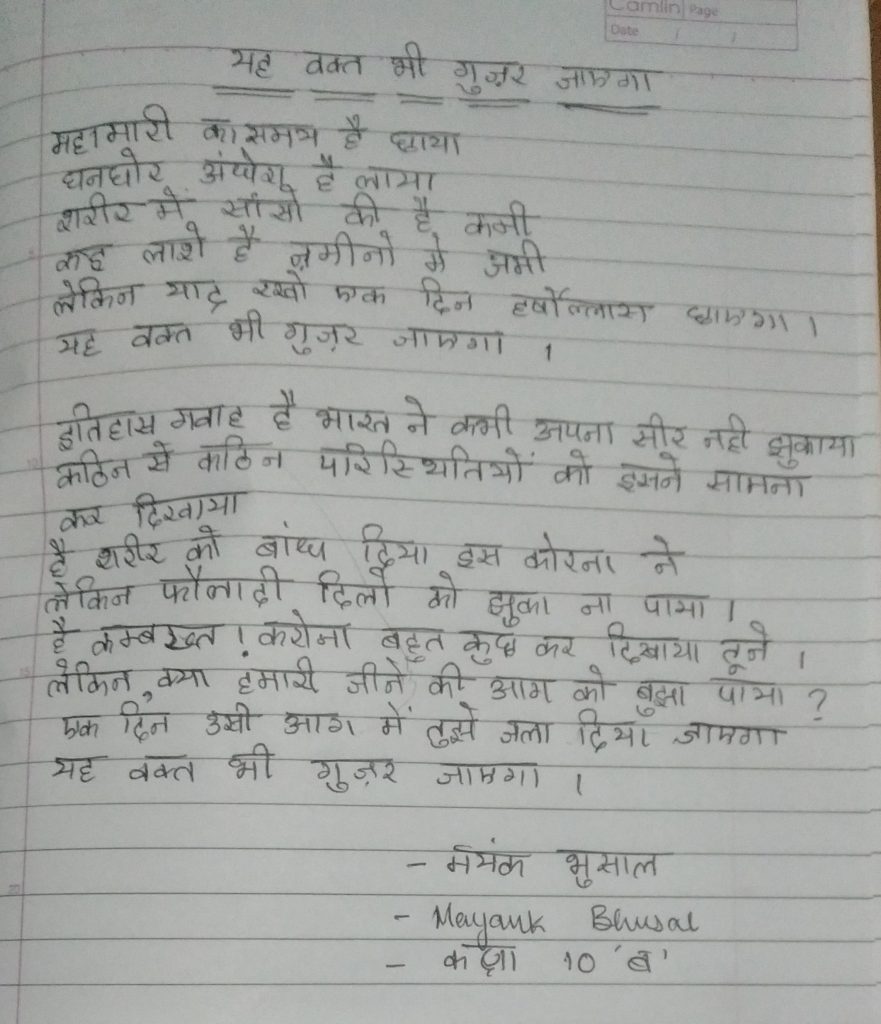 Camlin Page
Date / /
यह वक्त भी गुज़र जाएगा
महामारी का समय है छाया
घनघोर अंधेरा है लाया
शरीर में सांसो की है कमी
कइ लाशे है ज़मीनो मे जमी
लेकिन याद रखो एक दिन हर्षोल्लास छाएगा ।
यह वक्त भी गुज़र जाएगा ।
इतिहास गवाह है भारत ने कभी अपना सीर नही झुकाया
कठिन से कठिन परिस्थितियों को इसने सामना
कर दिखाया
है शरीर को बांध दिया इस कोरना ने
लेकिन फौलादी दिलो को झुका ना पाया ।
है कम्बख्त ! करोना बहुत कुछ कर दिखाया तूने ।
लेकिन, क्या हमारी जीने की आग को बुझा पाया ?
एक दिन उसी आग में तुझे जला दिया जाएगा
यह वक्त भी गुज़र जाएगा ।
- मयंक भुसाल
- Mayank Bhusal
- कक्षा 10 'ब'